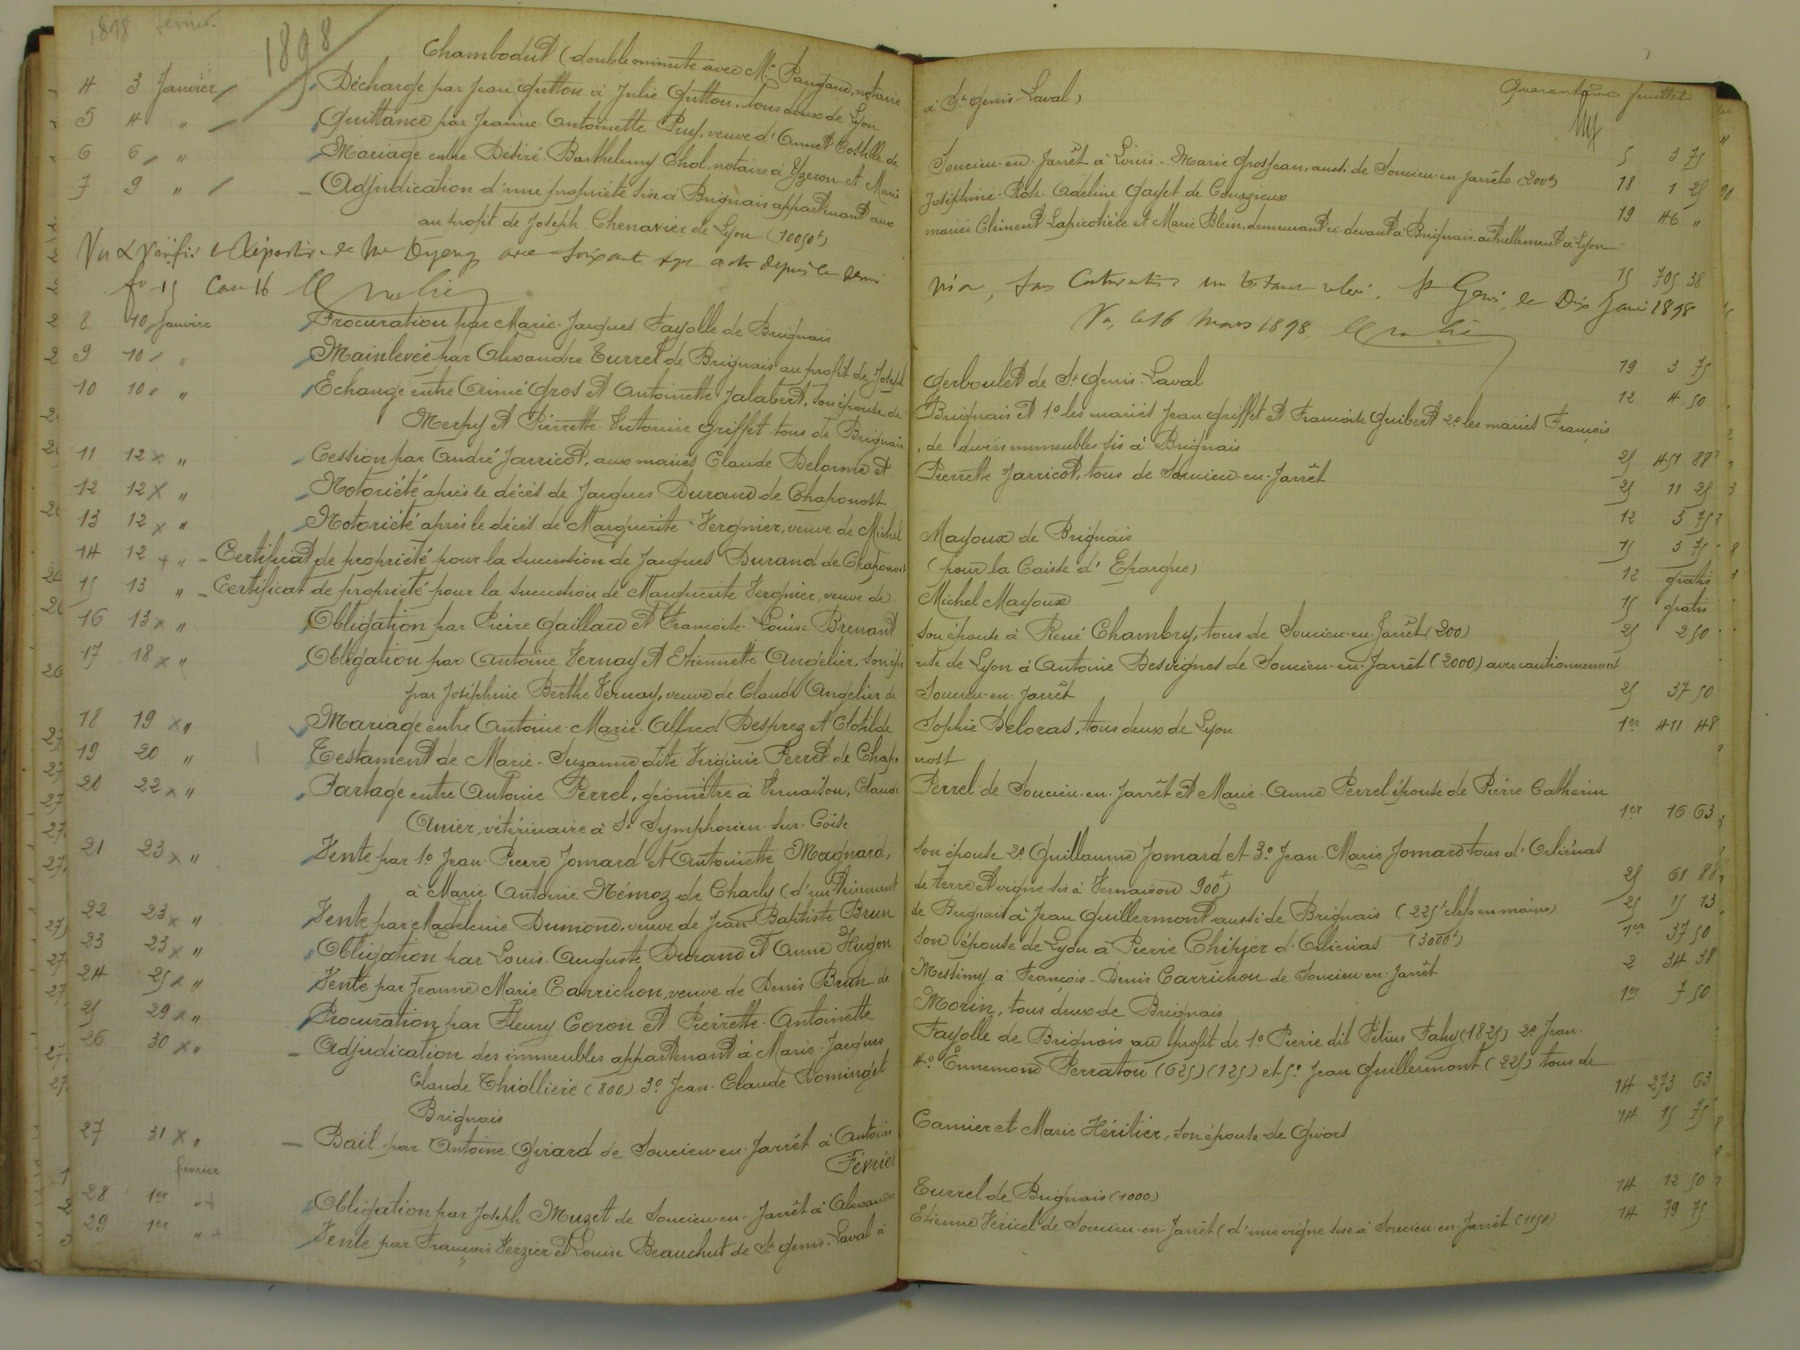 1898 février
1898
Chambodut (double minute avec Me Paugaud, notaire à St Genis-Laval)
Quarantième feuillet
4 3 Janvier Décharge par Jean Gutton à Julie Gutton, tous deux de Lyon
5 4 " Quittance par Jeanne Antoinette Puy, veuve d'Annet Costille de Soucieu-en-Jarrêt à Louis-Marie Grosjean, aussi de Soucieu-en-Jarrêt (200f) 5 3 75
6 6 " Mariage entre Désiré Barthelemy Chol, notaire à Yzeron et Marie Joséphine-Rose-Adeline Gayet de Courzieux 18 1 25
7 9 " Adjudication d'une propriété sise à Brignais appartenant aux mariés Clément Lapicotière et Marie Bleu, demeurant ci-devant à Brignais, actuellement à Lyon 19 46 "
au profit de Joseph Chenavier de Lyon (10050f) 15 705 38
Vu & Vérifié le Répertoire de Me
St Genis, le Dix Janvier 1898
fo 15 Case 16
Vu, le 16 Mars 1898
8 10 Janvier Procuration par Marie-Jacques Fayolle de Brignais 19 3 75
9 10 " Mainlevée par Alexandre Eurrel de Brignais au profit de Joseph Gerboulet de St Genis-Laval 12 4 50
10 10 " Echange entre Aimé Gros et Antoinette Jalabert, son épouse de Brignais et 1o les mariés Jean Griffet et Françoise Guibert 2o les mariés François
Merpuy et Pierrette Victorine Griffet tous de Brignais, de divers immeubles sis à Brignais 25 451 88
11 12 x " Cession par André Jarricot, aux mariés Claude Delorme et Pierrette Jarricot, tous de Soucieu-en-Jarrêt 25 11 25
12 12 x " Notoriété après le décès de Jacques Durand de Chaponost 12 3 75
13 12 x " Notoriété après le décès de Marguerite Vergnier, veuve de Michel Mayoux de Brignais 15 3 75
14 12 x " Certificat de propriété pour la succession de Jacques Durand de Chaponost (pour la Caisse d'Epargne) 12 gratis
15 13 " Certificat de propriété pour la succession de Marguerite Vergnier, veuve de Michel Mayoux 15 gratis
16 13 x " Obligation par Pierre Gaillard et Françoise-Louise Brenant son épouse à René Chambry, tous de Soucieu-en-Jarrêt (200) 25 2 50
17 18 x " Obligation par Antoine Vernay et Etiennette Angelier, son ép use de Lyon à Antoine Desvignes de Soucieu-en-Jarrêt (2000) avec cautionnement
par Joséphine Berthe Vernay, veuve de Claude Angelier de Soucieu-en-Jarrêt 25 37 50
18 19 x " Mariage entre Antoine-Marie-Alfred Desprez et Clotilde Sophie Deloras, tous deux de Lyon 1er 411 48
19 20 " Testament de Marie-Suzanne dite Virginie Perret de Chapo nost
20 22 x " Partage entre Antoine Perrel, géomètre à Vernaison, Claude Perrel de Soucieu-en-Jarrêt et Marie-Anne Perrel épouse de Pierre Catherin
Anier, vétérinaire à St Symphorien-sur-Coise 1er 16 63
21 23 x " Vente par 1o Jean-Pierre Jomard et Antoinette Magnard, son épouse 2o Guillaume Jomard et 3o Jean-Marie Jomard tous d'Orliénas
à Marie Antoine Némoz de Charly (d'un tènement de terre et vigne sis à Vernaison 900f) 25 61 88
22 23 x " Vente par Madeleine Dumond, veuve de Jean-Baptiste Brun de Brignais à Jean Guillermont aussi de Brignais (225f clefs en mains) 25 15 13
23 23 x " Obligation par Louis-Auguste Durand et Anne Hugon son épouse de Lyon à Pierre Chipier d'Orliénas (3000f) 1er 37 50
24 25 x " Vente par Jeanne Marie Carrichon, veuve de Denis Brun de Messimy à François-Denis Carrichon de Soucieu-en-Jarrêt 2 34 38
25 29 x " Procuration par Fleury Coron et Pierrette-Antoinette Morin, tous deux de Brignais 1er 7 50
26 30 x " Adjudication des immeubles appartenant à Marie-Jacques Fayolle de Brignais au profit de 1o Pierre dit Pétrus Fahy (1825) 2o Jean-
Claude Thiollière (800) 3o Jean-Claude Dominget 4o Ennemond Perraton (625) (125) et 5o Jean Guillermont (225) tous de
Brignais 14 273 63
27 31 x " Bail par Antoine Girard de Soucieu-en-Jarrêt à Antoine Camier et Marie Héritier, son épouse de Givors 14 15 75
Février
février
28 1er " Obligation par Joseph Muzet de Soucieu-en-Jarrêt à Alexandre Eurrel de Brignais (1000) 14 12 50
29 1er " Vente par François Verzier et Louise Beauchut de St Genis-Laval à Etienne Véricel de Soucieu-en-Jarrêt (d'une vigne sise à Soucieu-en-Jarrêt (1150) 14 79 75